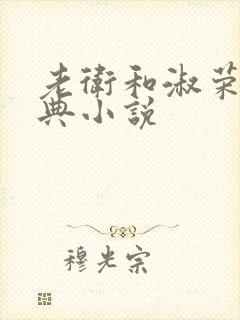 老衛和淑荣
典小説
穆光宗